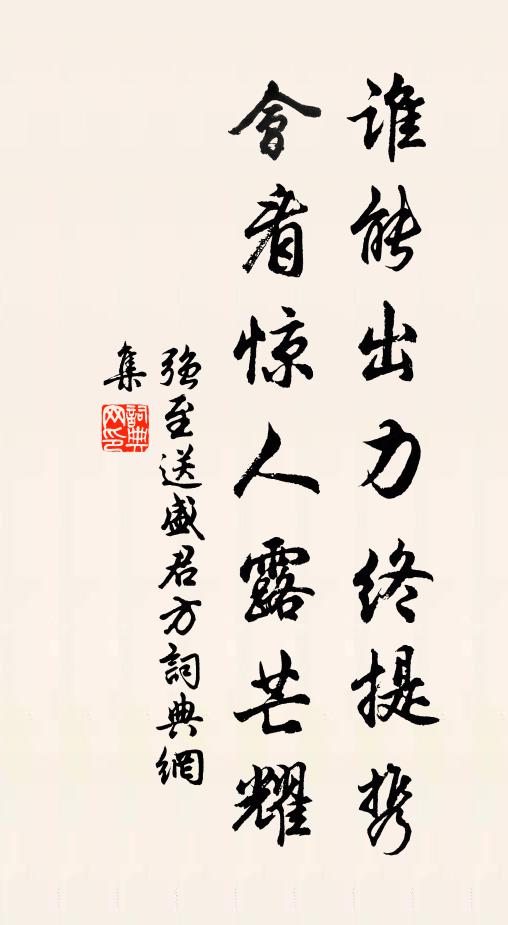 谁能出力终提携
會看惊人露芒耀
强至送盛君方詞典網
集
詞典网印